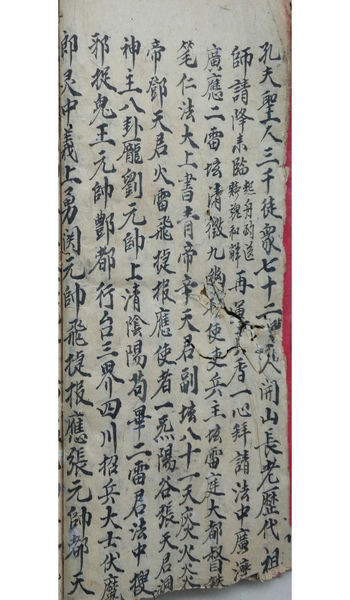 孔夫聖人三千徒衆七十二賢人開山長老歷代祖
師請降來臨 起舟酌送 移魂和解 再薰真香一心拜請法中廣
廣應二雷坛清微九 使吏兵主坛雷庭大都督鉄
笔仁法大上書青帝辛天君副坛八十一天突火炎火
帝鄧天君火雷飛捷报應使者一炁陽谷張天君洞
神主八卦龐劉元帥上清陰陽苟畢二雷君法中捜
邪捉鬼王元帥酆都行台三界四川招兵大士伏魔
郎灵中義上勇関元帥飛捷报應張元帥都天